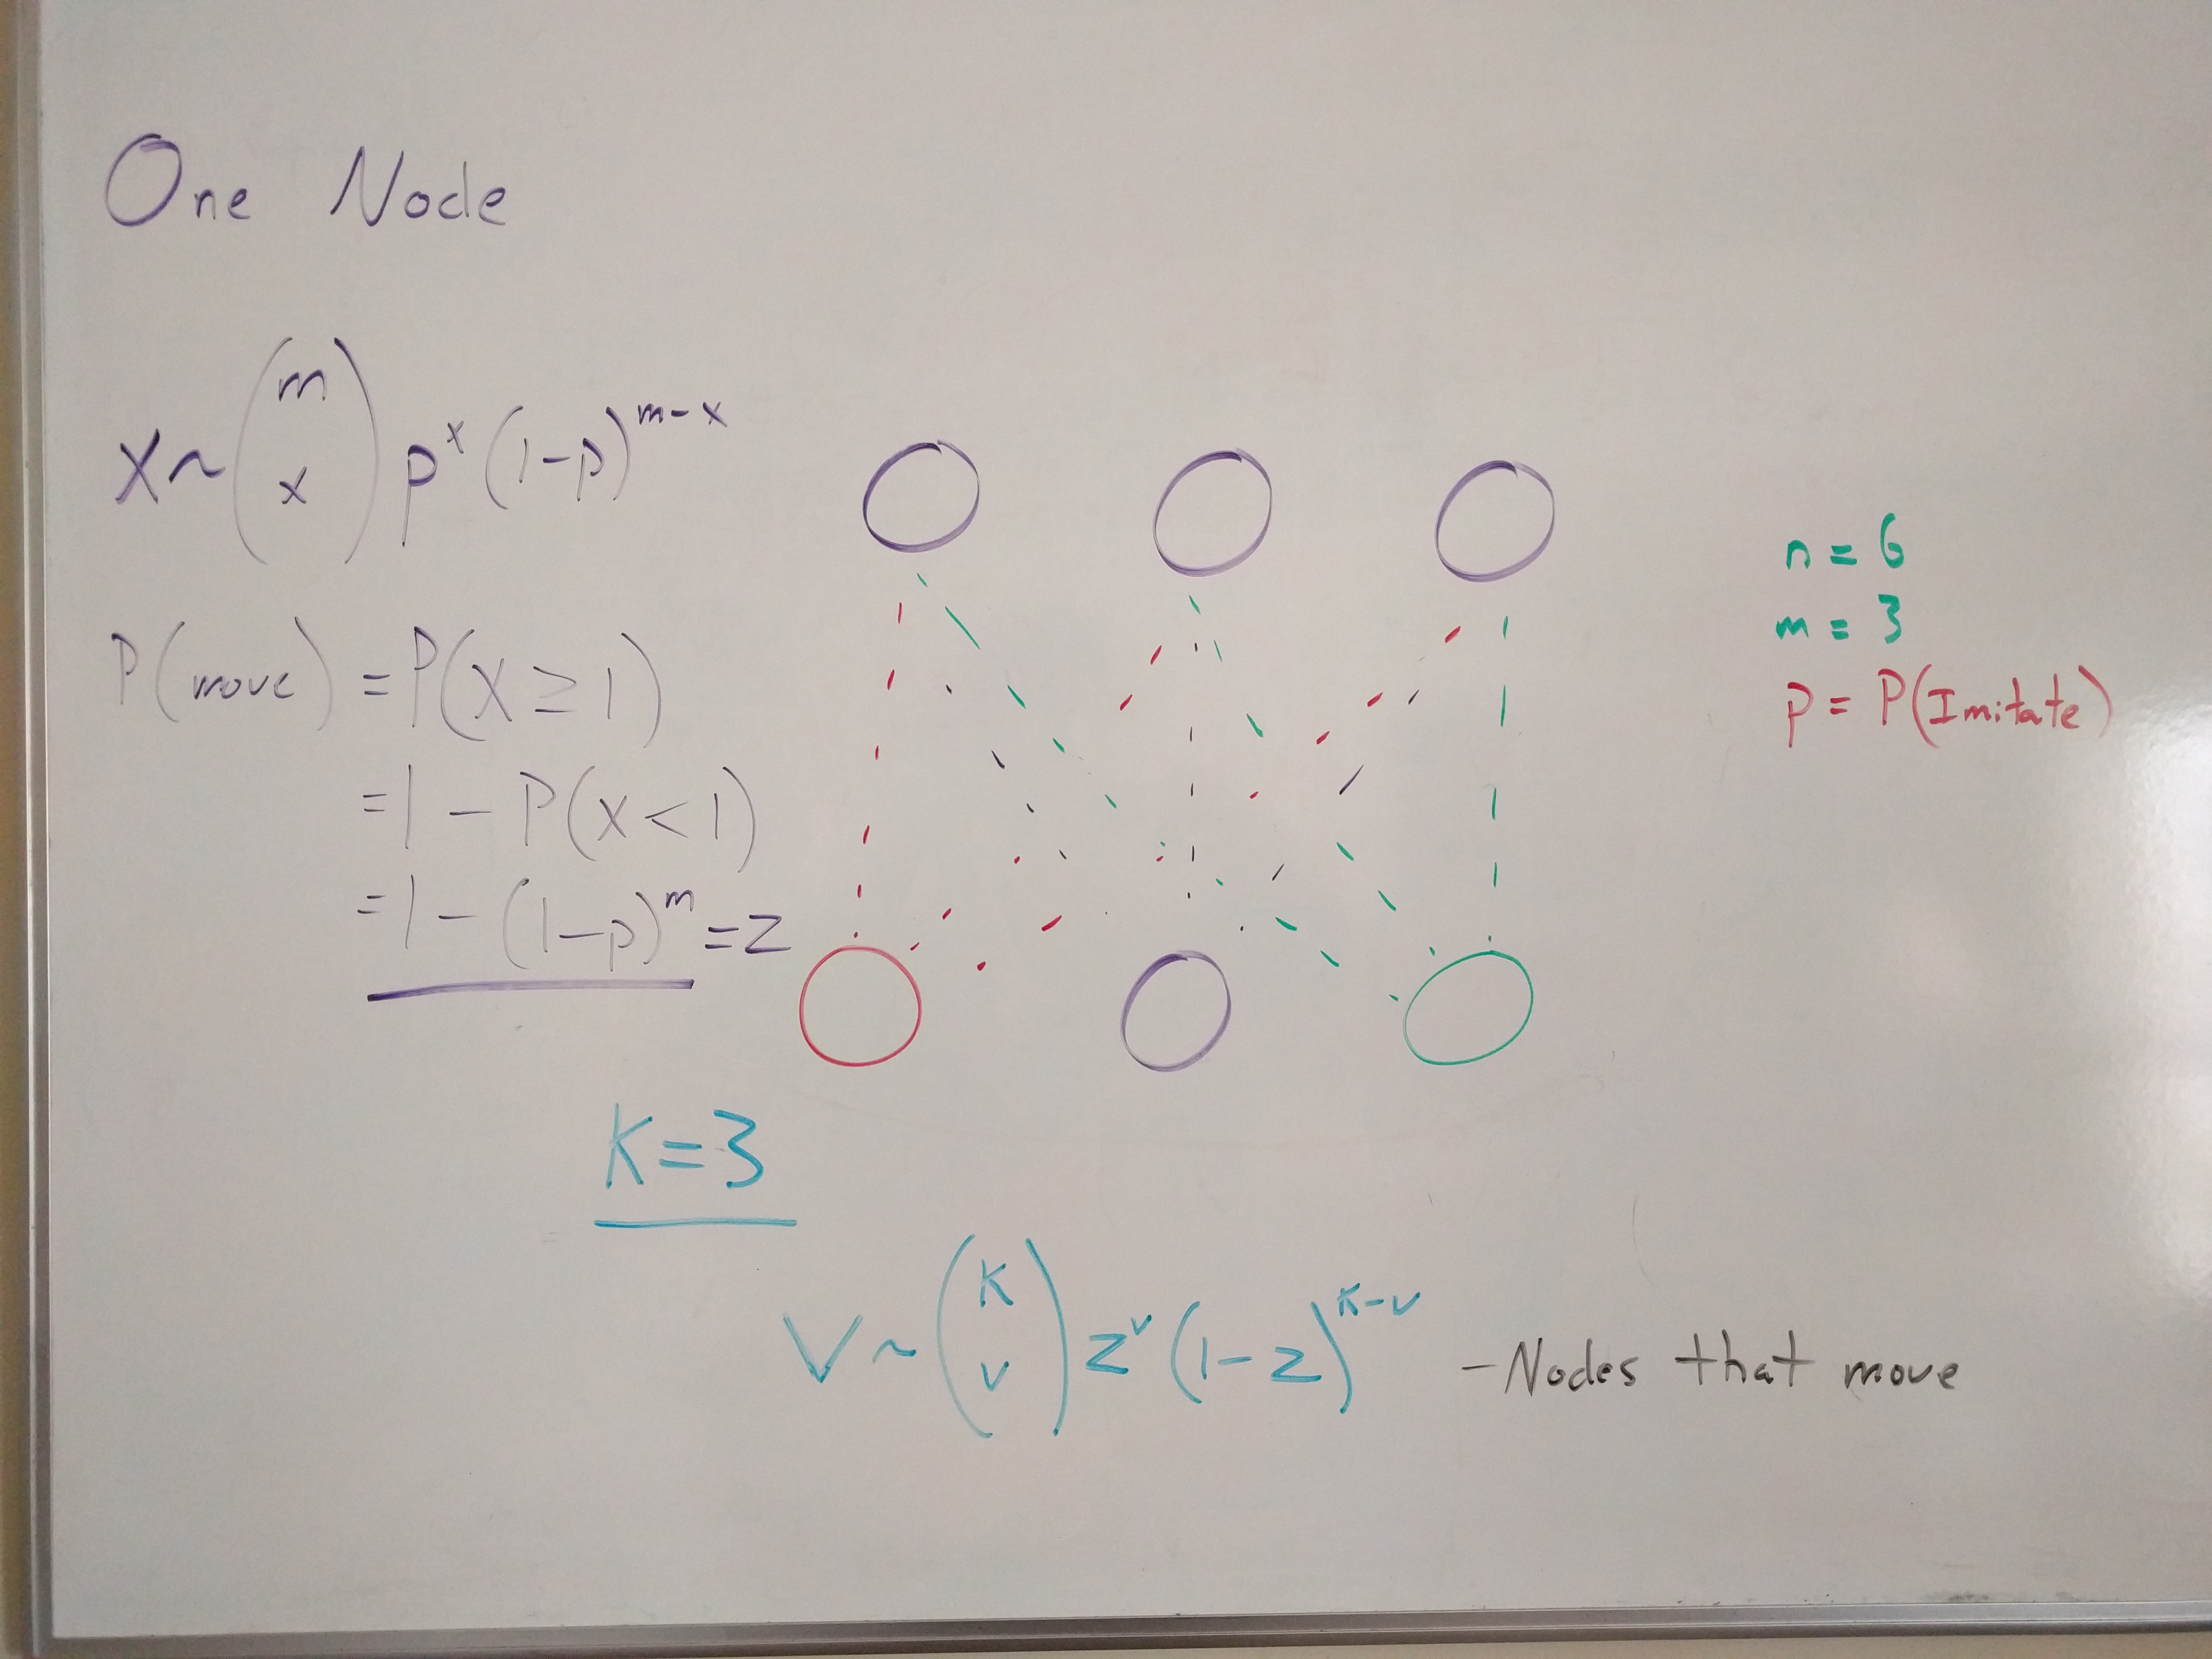 One Node
X ~ (m x) p^x (1-p)^{m-x}
P(move) = P(X ≥ 1)
= 1 - P(x < 1)
= 1 - (1-p)^m = z
n = 6
m = 3
p = P(Imitate)
K=3
V ~ (K v) z^v (1-z)^{K-v} - Nodes that move